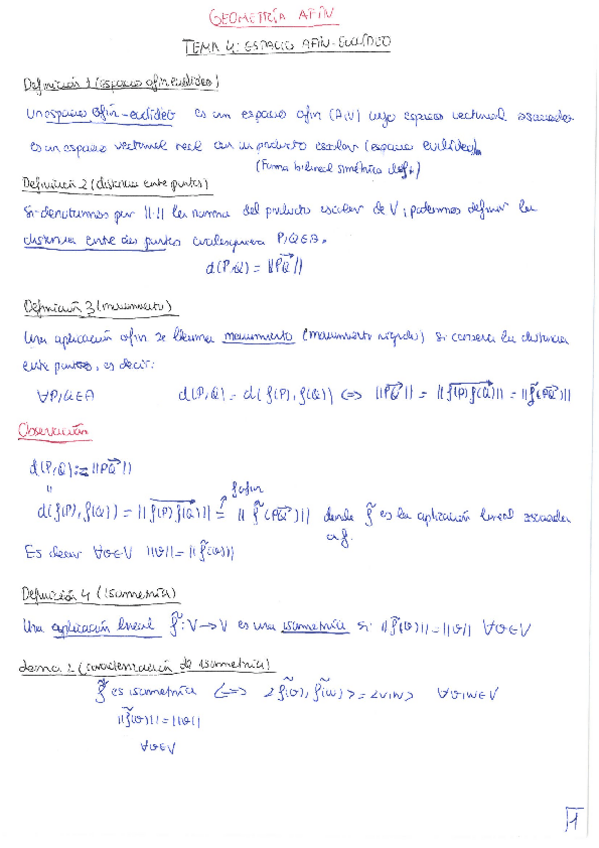 GEOMETRÍA AFÍN
TEMA 4: ESPACIO AFIN-EUCLÍDEO
Definición 1 (espacio afín euclídeo)
Un espacio afín-euclídeo es un espacio afín (A,V) cuyo espacio vectorial asociado
es un espacio vectorial real con un producto escalar (espacio euclídeo).
(Forma bilineal simétrica def +)
Definición 2 (distancia entre puntos)
Si denotamos por ||·|| la norma del producto escalar de V, podemos definir la
distancia entre dos puntos cualesquiera P,Q∈A.
d(P,Q) = ||PQ→||
Definición 3 (movimiento)
Una aplicación afín se llama movimiento (movimiento rígido) si conserva la distancia
entre puntos, es decir:
∀P,Q∈A d(P,Q) = d(f(P), f(Q)) ⟺ ||PQ→|| = ||f(P)f(Q)→|| = ||f̃(PQ→)||
Observación
d(P,Q) := ||PQ→||
" f afín
d(f(P), f(Q)) = ||f(P)f(Q)→|| = ||f̃(PQ→)|| donde f̃ es la aplicación lineal asociada
a f.
Es decir ∀v∈V ||v|| = ||f̃(v)||
Definición 4 (isometría)
Una aplicación lineal f̃: V→V es una isometría si ||f̃(v)|| = ||v|| ∀v∈V
Lema 1 (caracterización de isometría)
f̃ es isometría ⟺ <f̃(v), f̃(w)> = <v,w> ∀v,w∈V
||f̃(v)|| = ||v||
∀v∈V
1